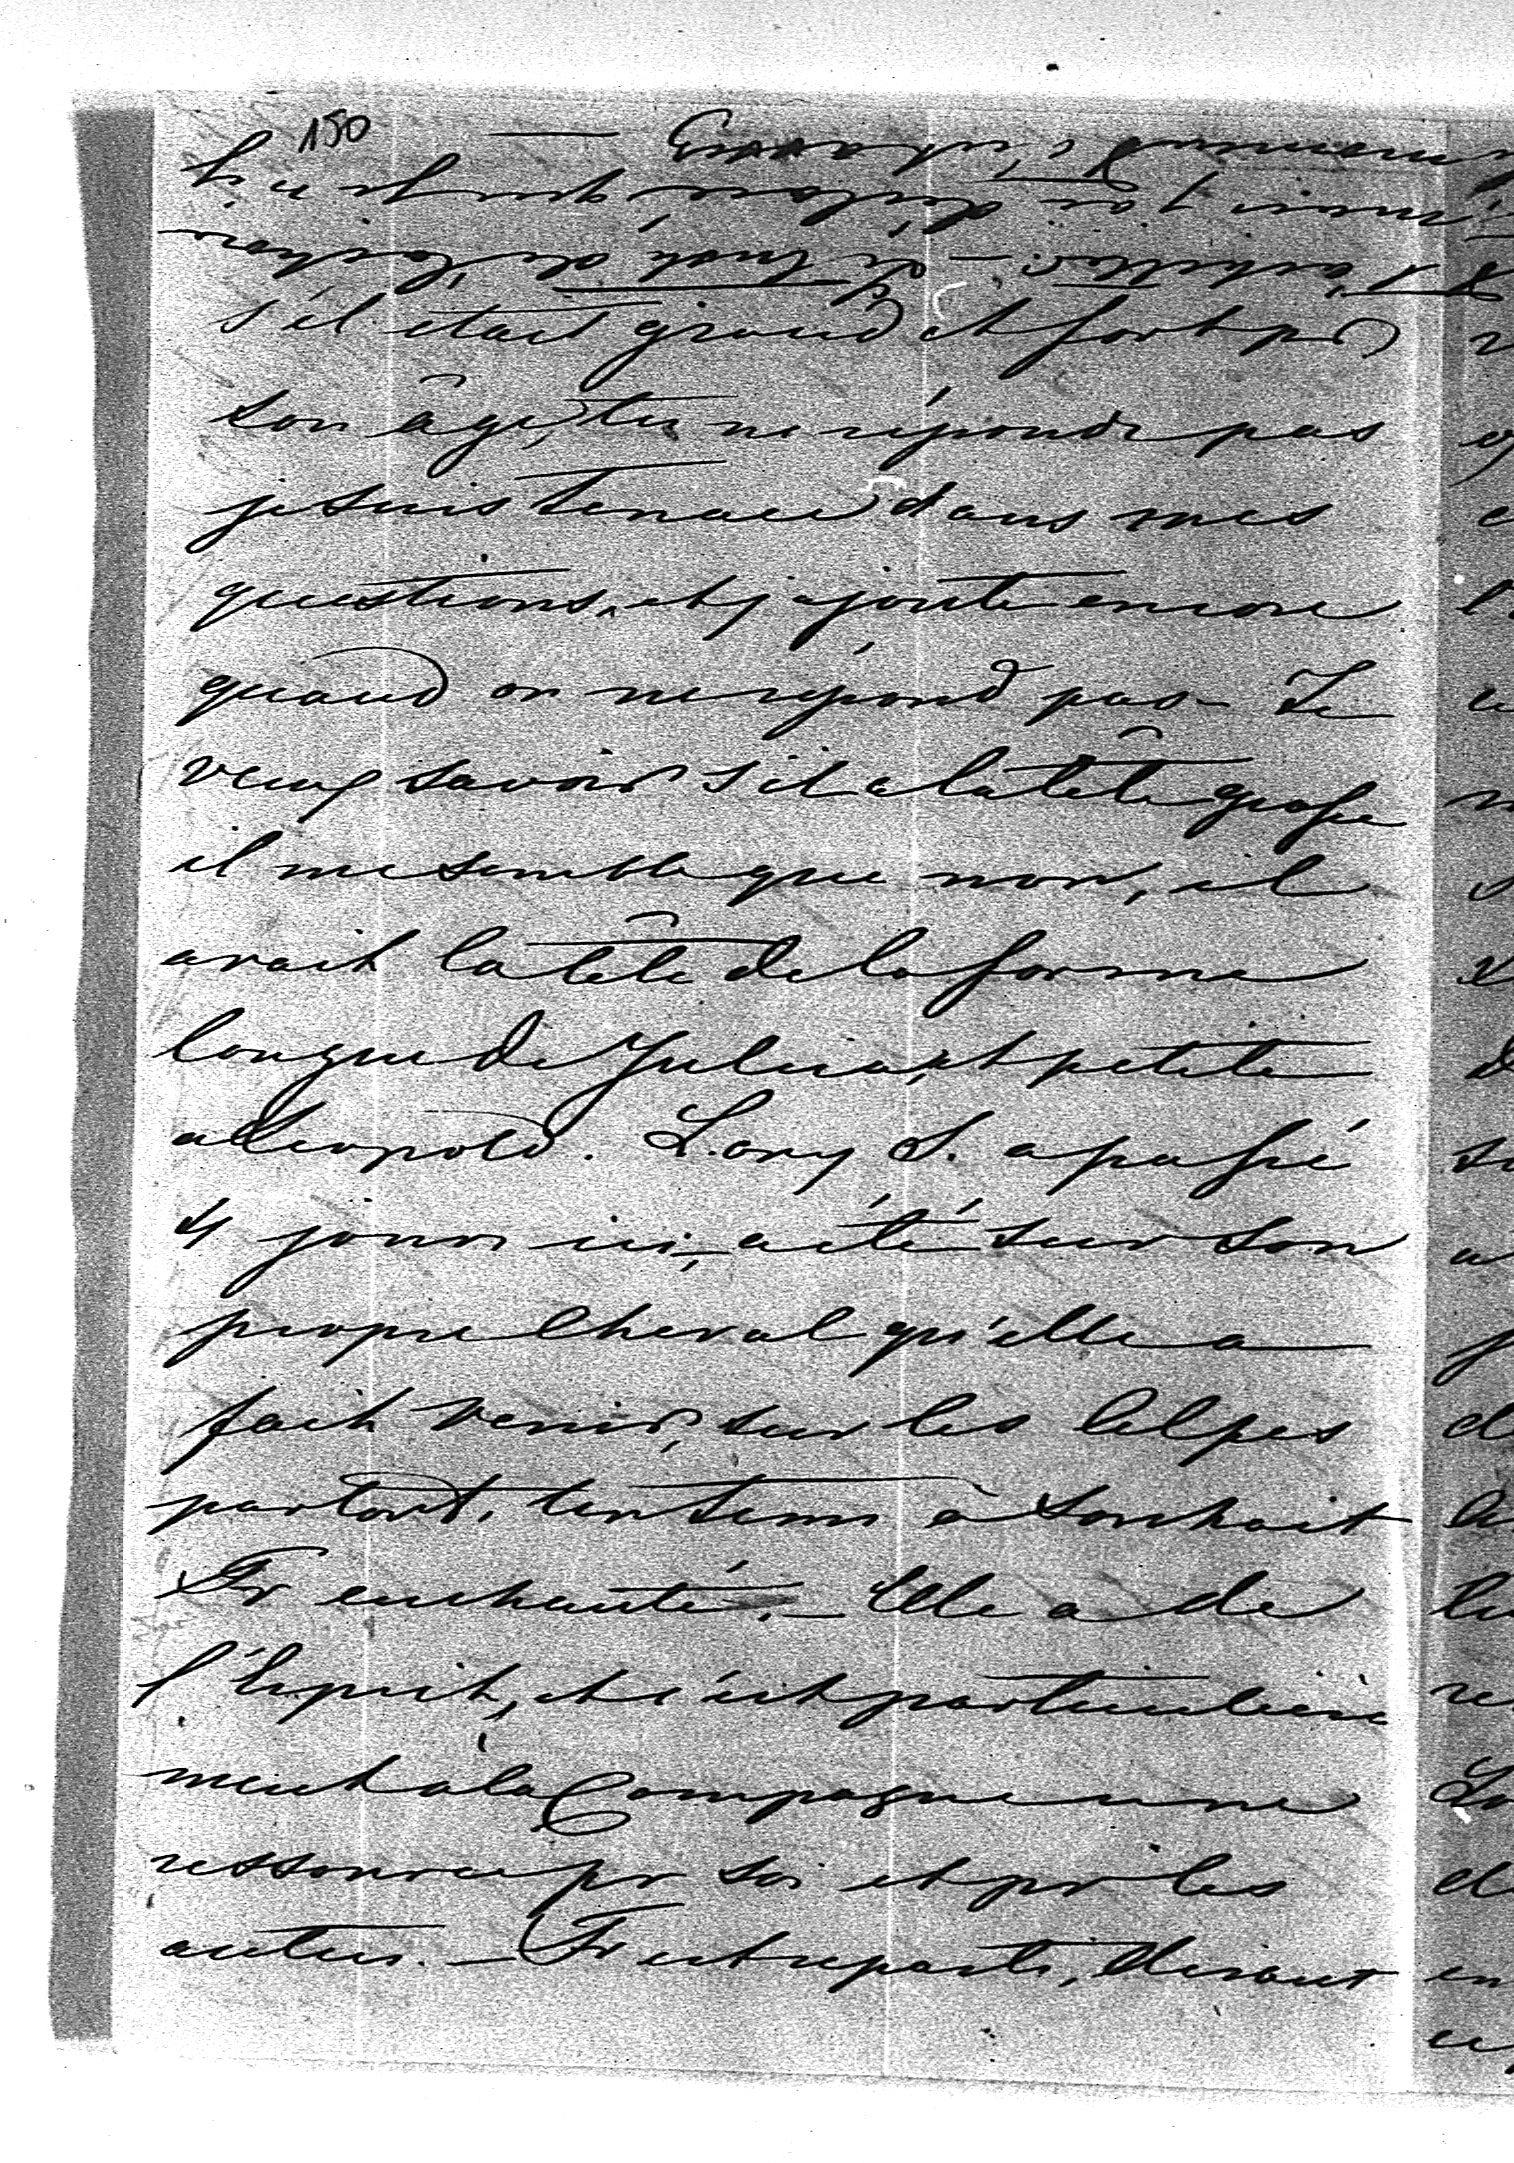 150
s'il était grand et fort pr
son âge, tu ne réponds pas
je suis tenace dans mes
questions, et j'ajoute encore
quand on ne répond pas - Je
veux savoir s'il a la tête grosse
il me semble que non, il
avait la tête de la forme
longue de Julie, et petite
a Leopold. Lory S. a passé
4 jours ici, a été sur son
propre cheval qu'elle a
fait venir, sur les alpes
partout, un tems à souhait
Fr enchanté. - Elle a de
l'esprit, et c'est particulière
ment à la Compagne une
ressource pr soi et pr les
autres. - Fr est reparti, disant